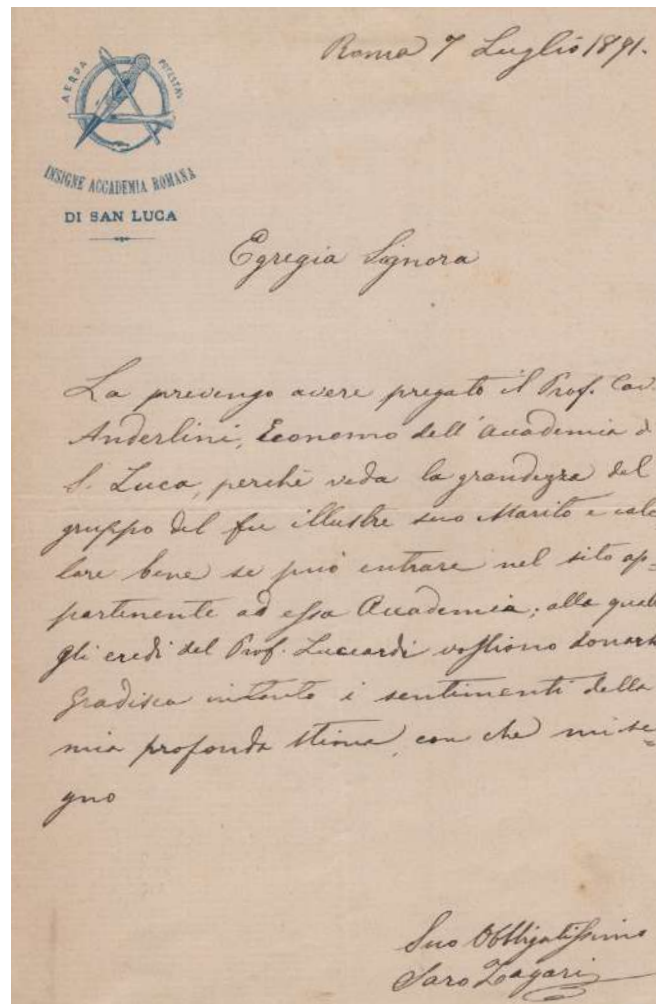 Roma 7 Luglio 1891.
AEQUA POTESTAS
INSIGNE ACCADEMIA ROMANA
DI SAN LUCA
Egregia Signora
La prevengo avere pregato il Prof. Cav.
Anderlini, Economo dell'Accademia d
S. Luca, perchè veda la grandezza del
gruppo del fu illustre suo Marito e calc
lare bene se può entrare nel sito ap=
partinente ad essa Accademia; alla quale
gli eredi del Prof. Luccardi vogliono donarl
Gradisca intanto i sentimenti della
mia profonda stima, con che mi se=
gno
Suo Obbligatissimo
Saro Zagari